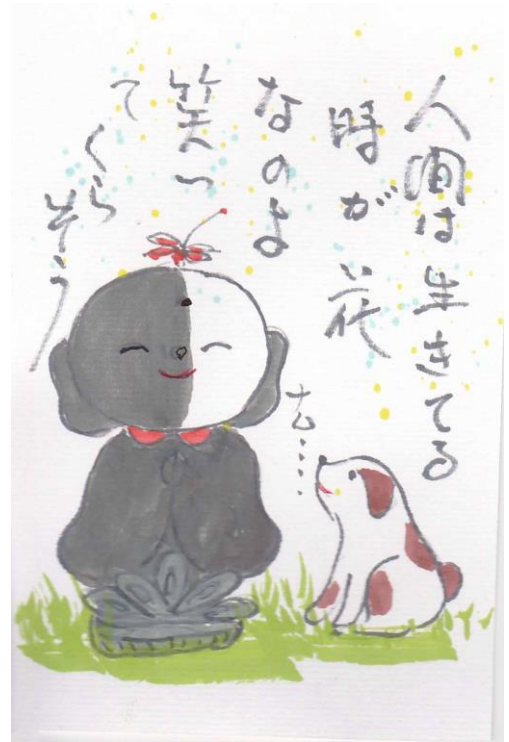 人間は生きてる
時が花
なのよ
笑っ
て
くら
そう